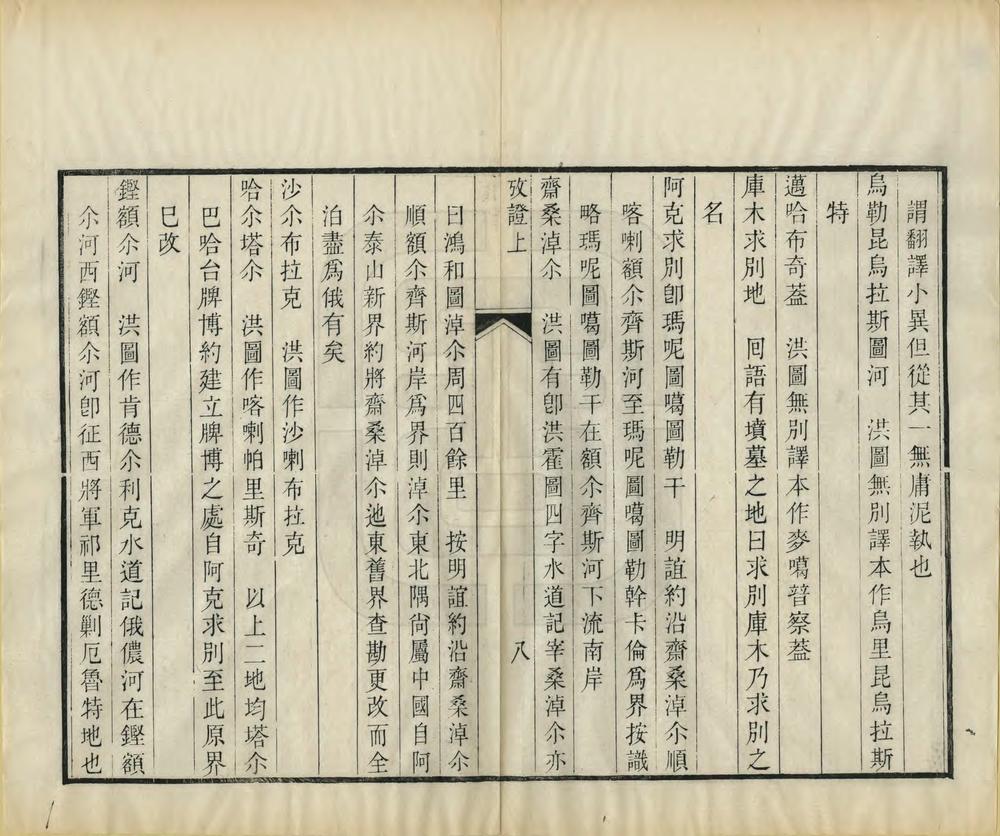 謂翻譯小異但從其一無庸泥執也
烏勒昆烏拉斯圖河　洪圖無別譯本作烏里昆烏拉斯
特
邁哈布奇葢　洪圖無別譯本作麥噶普察葢
庫木求別地　回語有墳墓之地曰求別庫木乃求別之
名
阿克求別卽瑪呢圖噶圖勒干　明誼約沿齋桑淖尒順
喀喇額尒齊斯河至瑪呢圖噶圖勒幹卡倫爲界按識
略瑪呢圖噶圖勒干在額尒齊斯河下流南岸
齋桑淖尒　洪圖有卽洪霍圖四字水道記宰桑淖尒亦
攷證上　八
曰鴻和圖淖尒周四百餘里　按明誼約沿齋桑淖尒
順額尒齊斯河岸爲界則淖尒東北隅尙屬中國自阿
尒泰山新界約將齋桑淖尒迆東舊界查勘更改而全
泊盡爲俄有矣
沙尒布拉克　洪圖作沙喇布拉克
哈尒塔尒　洪圖作喀喇帕里斯奇　以上二地均塔尒
巴哈台牌博約建立牌博之處自阿克求別至此原界
巳改
鏗額尒河　洪圖作肯德尒利克水道記俄儂河在鏗額
尒河西鏗額尒河卽征西將軍祁里德剿厄魯特地也